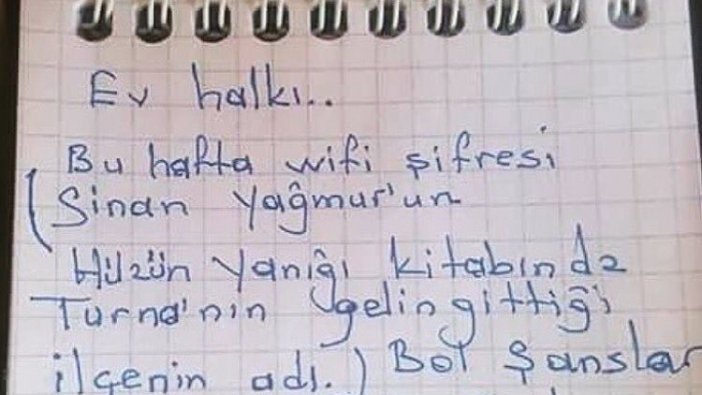 Ev halkı..
Bu hafta wifi şifresi
(Sinan Yağmur'un
Hüzün Yanığı kitabında
Turna'nın gelin gittiği
ilçenin adı.) Bol Şanslar